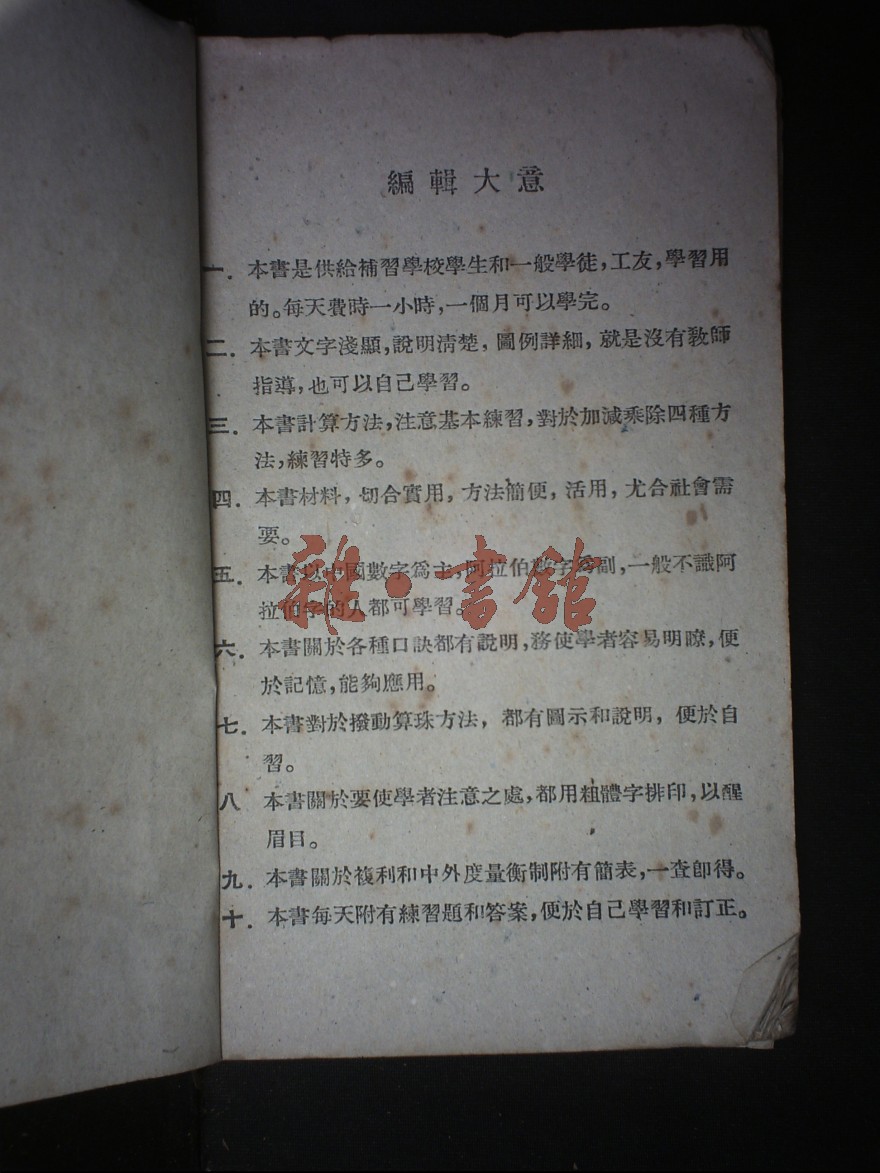 編輯大意
一. 本書是供給補習學校學生和一般學徒,工友,學習用
的。每天費時一小時,一個月可以學完。
二. 本書文字淺顯,說明清楚,圖例詳細,就是沒有教師
指導,也可以自己學習。
三. 本書計算方法,注意基本練習,對於加減乘除四種方
法,練習特多。
四. 本書材料,切合實用,方法簡便,活用,尤合社會需
要。
五. 本書以中國數字爲主,阿拉伯數字爲副,一般不識阿
拉伯字的人都可學習。
雜·書館
六. 本書關於各種口訣都有說明,務使學者容易明瞭,便
於記憶,能夠應用。
七. 本書對於撥動算珠方法,都有圖示和說明,便於自
習。
八 本書關於要使學者注意之處,都用粗體字排印,以醒
眉目。
九. 本書關於複利和中外度量衡制附有簡表,一查卽得。
十. 本書每天附有練習題和答案,便於自己學習和訂正。